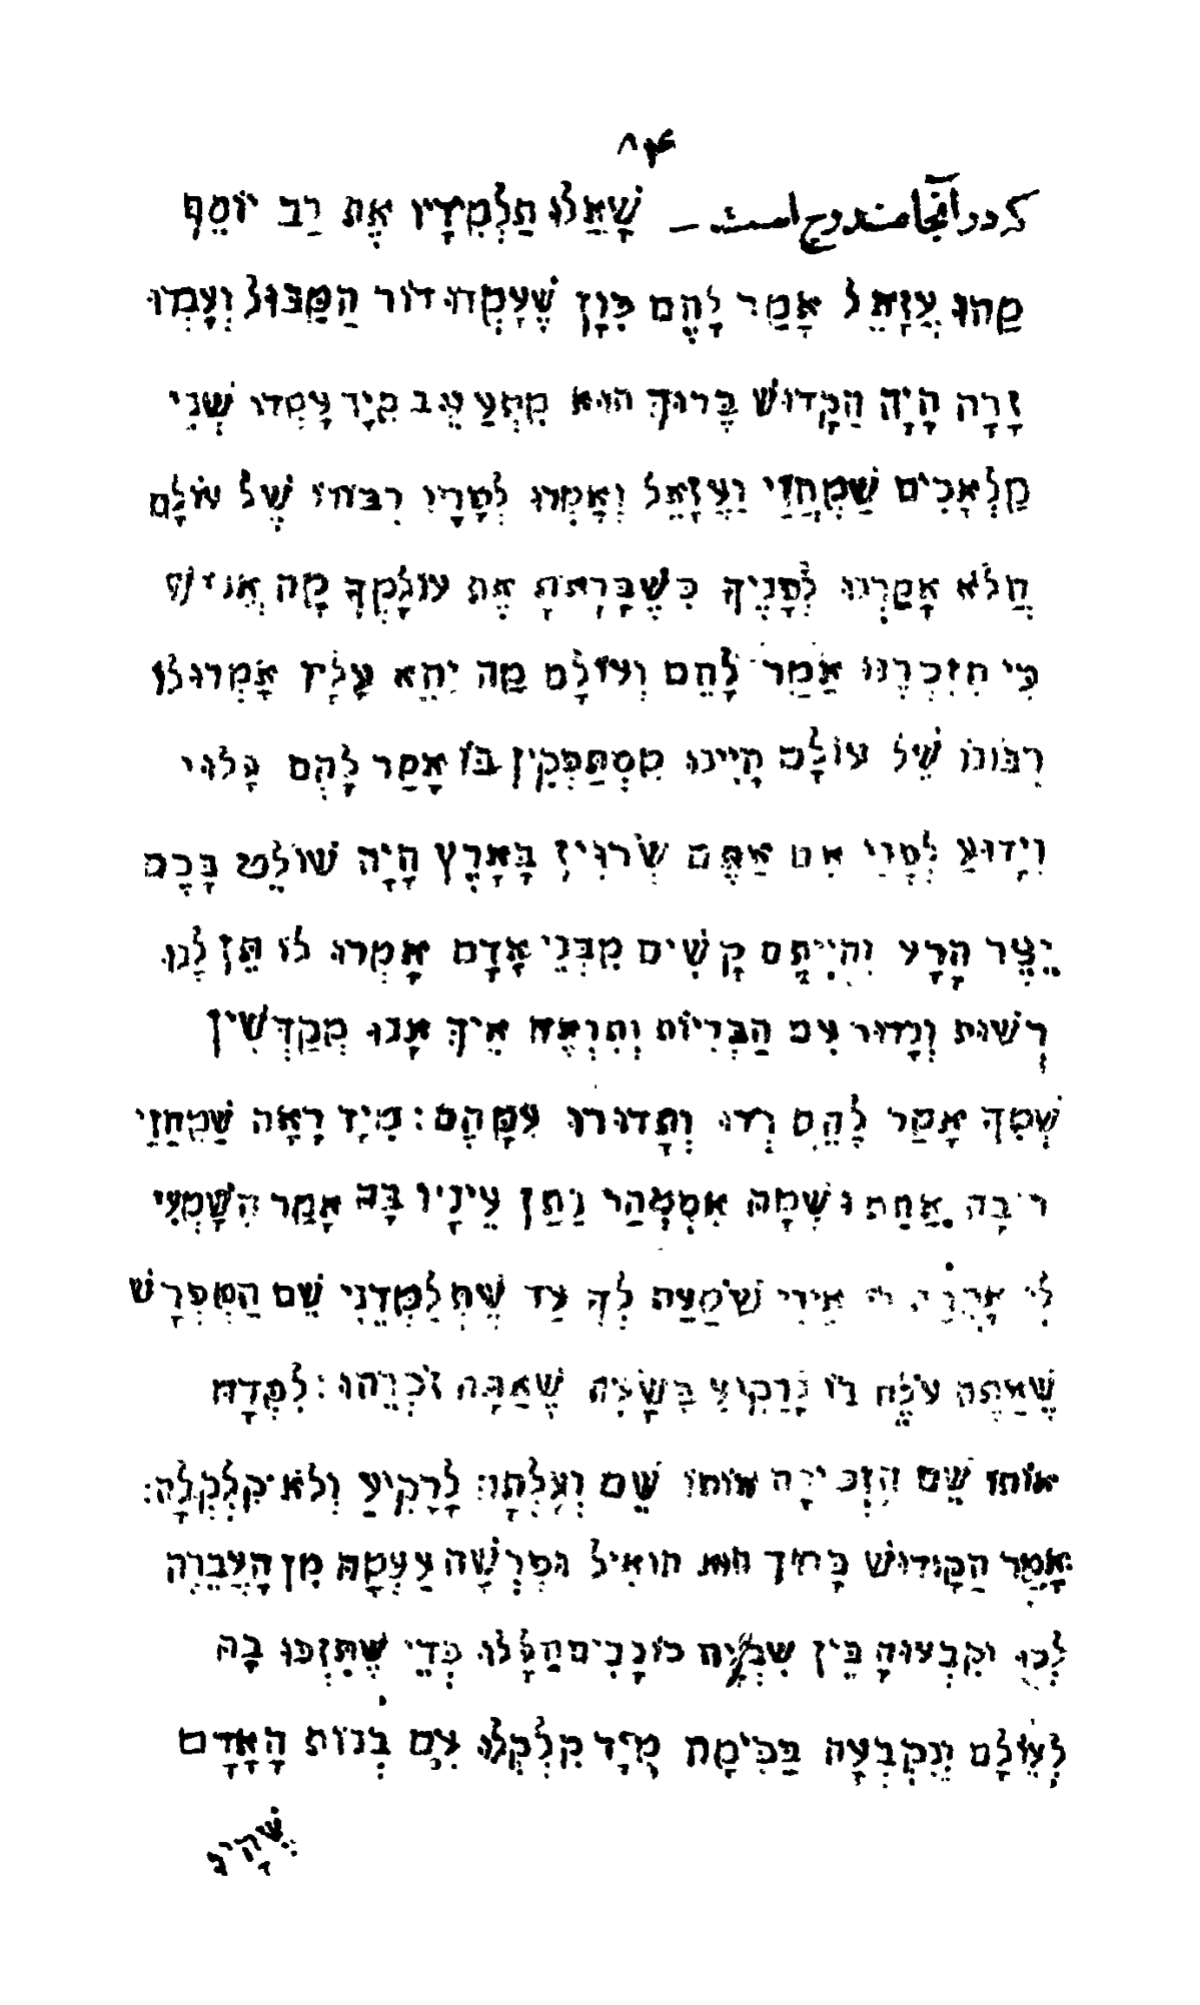 ۸۴
که در آنجا مندرج است – שָׁאֲלוּ תַלְמִידָיו אֶת רַב יוֹסֵף
מַהוּ עֲזָאֵל אָמַר לָהֶם כֵּוָן שֶׁעָמְדוּ דוֹר הַמַּבּוּל וְעָבְדוּ
זָרָה הָיָה הַקָּדוֹשׁ בָּרוּךְ הוּא מִתְעַצֵּב מִיָד עָמְדוּ שְׁנֵי
מַלְאָכִים שַׁמְחֲזַי וַעֲזָאֵל וְאָמְרוּ לְפָנָיו רִבּוֹנוֹ שֶׁל עוֹלָם
הֲלֹא אָמַרְנוּ לְפָנֶיךָ כְּשֶׁבָּרָאתָ אֶת עוֹלָמֶךָ מָה אֱנוֹשׁ
כִּי תִזְכְּרֶנּוּ אָמַר לָהֵם וְעוֹלָם מַה יְהֵא עָלָיו אָמְרוּ לוֹ
רִבּוֹנוֹ שֶׁל עוֹלָם הָיִינוּ מִסְתַּפְּקִין בּוֹ אָמַר לָהֶם גָּלוּי
וְיָדוּעַ לְפָנַי אִם אַתֶּם שְׁרוּיִין בָּאָרֶץ הָיָה שׁוֹלֵט בָּכֶם
יֵצֶר הָרָע וִהְיִיתֶם קָשִׁים מִבְּנֵי אָדָם אָמְרוּ לוֹ תֵּן לָנוּ
רְשׁוּת וְנָדוּר עִם הַבְּרִיּוֹת וְתִרְאֶה אֵיךְ אָנוּ מְקַדְּשִׁין
שְׁמְךָ אָמַר לָהֶם רְדוּ וְתָדוּרוּ עִמָּהֶם׃ מִיָּד רָאָה שַׁמְחֲזַי
רִיבָה אַחַת וּשְׁמָהּ אִסְטְהַר נָתַן עֵינָיו בָּהּ אָמַר הִשָּׁמְעִי
לִי אָמְרָה לוֹ אֵינִי שׁוֹמַעַת לְךָ עַד שֶׁתְּלַמְּדֵנִי שֵׁם הַמְפֹרָשׁ
שֶׁאַתָּה עֹלֶה בוֹ לָרַקִיעַ בְּשָׁעָה שֶׁאַתָּה זֹכְרֵהוּ׃ לִמְּדָהּ
אוֹתוֹ שֵׁם הִזְכִּירָה אוֹתוֹ שֵׁם וְעָלְתָה לָרָקִיעַ וְלֹא קִלְקְלָה׃
אָמַר הַקָּדוֹשׁ בָּרוּךְ הוּא הוֹאִיל וּפִרְשָׁה עַצְמָהּ מִן הָעֲבֵרָה
לְכוּ וְקִבְעוּהָ בֵּין שִׁבְעָה כוֹכָבִים הַלָּלוּ כְּדֵי שֶׁתִּזְכּוּ בָהּ
לְעוֹלָם וְנִקְבְּעָה בַּכִּימָה מִיָּד קִלְקְלוּ עִם בְּנוֹת הָאָדָם
שֶׁהָיוּ